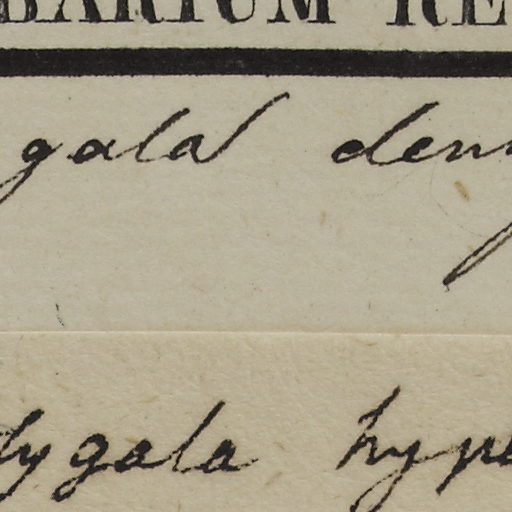 BARIUM RE
gala den
lygala hype